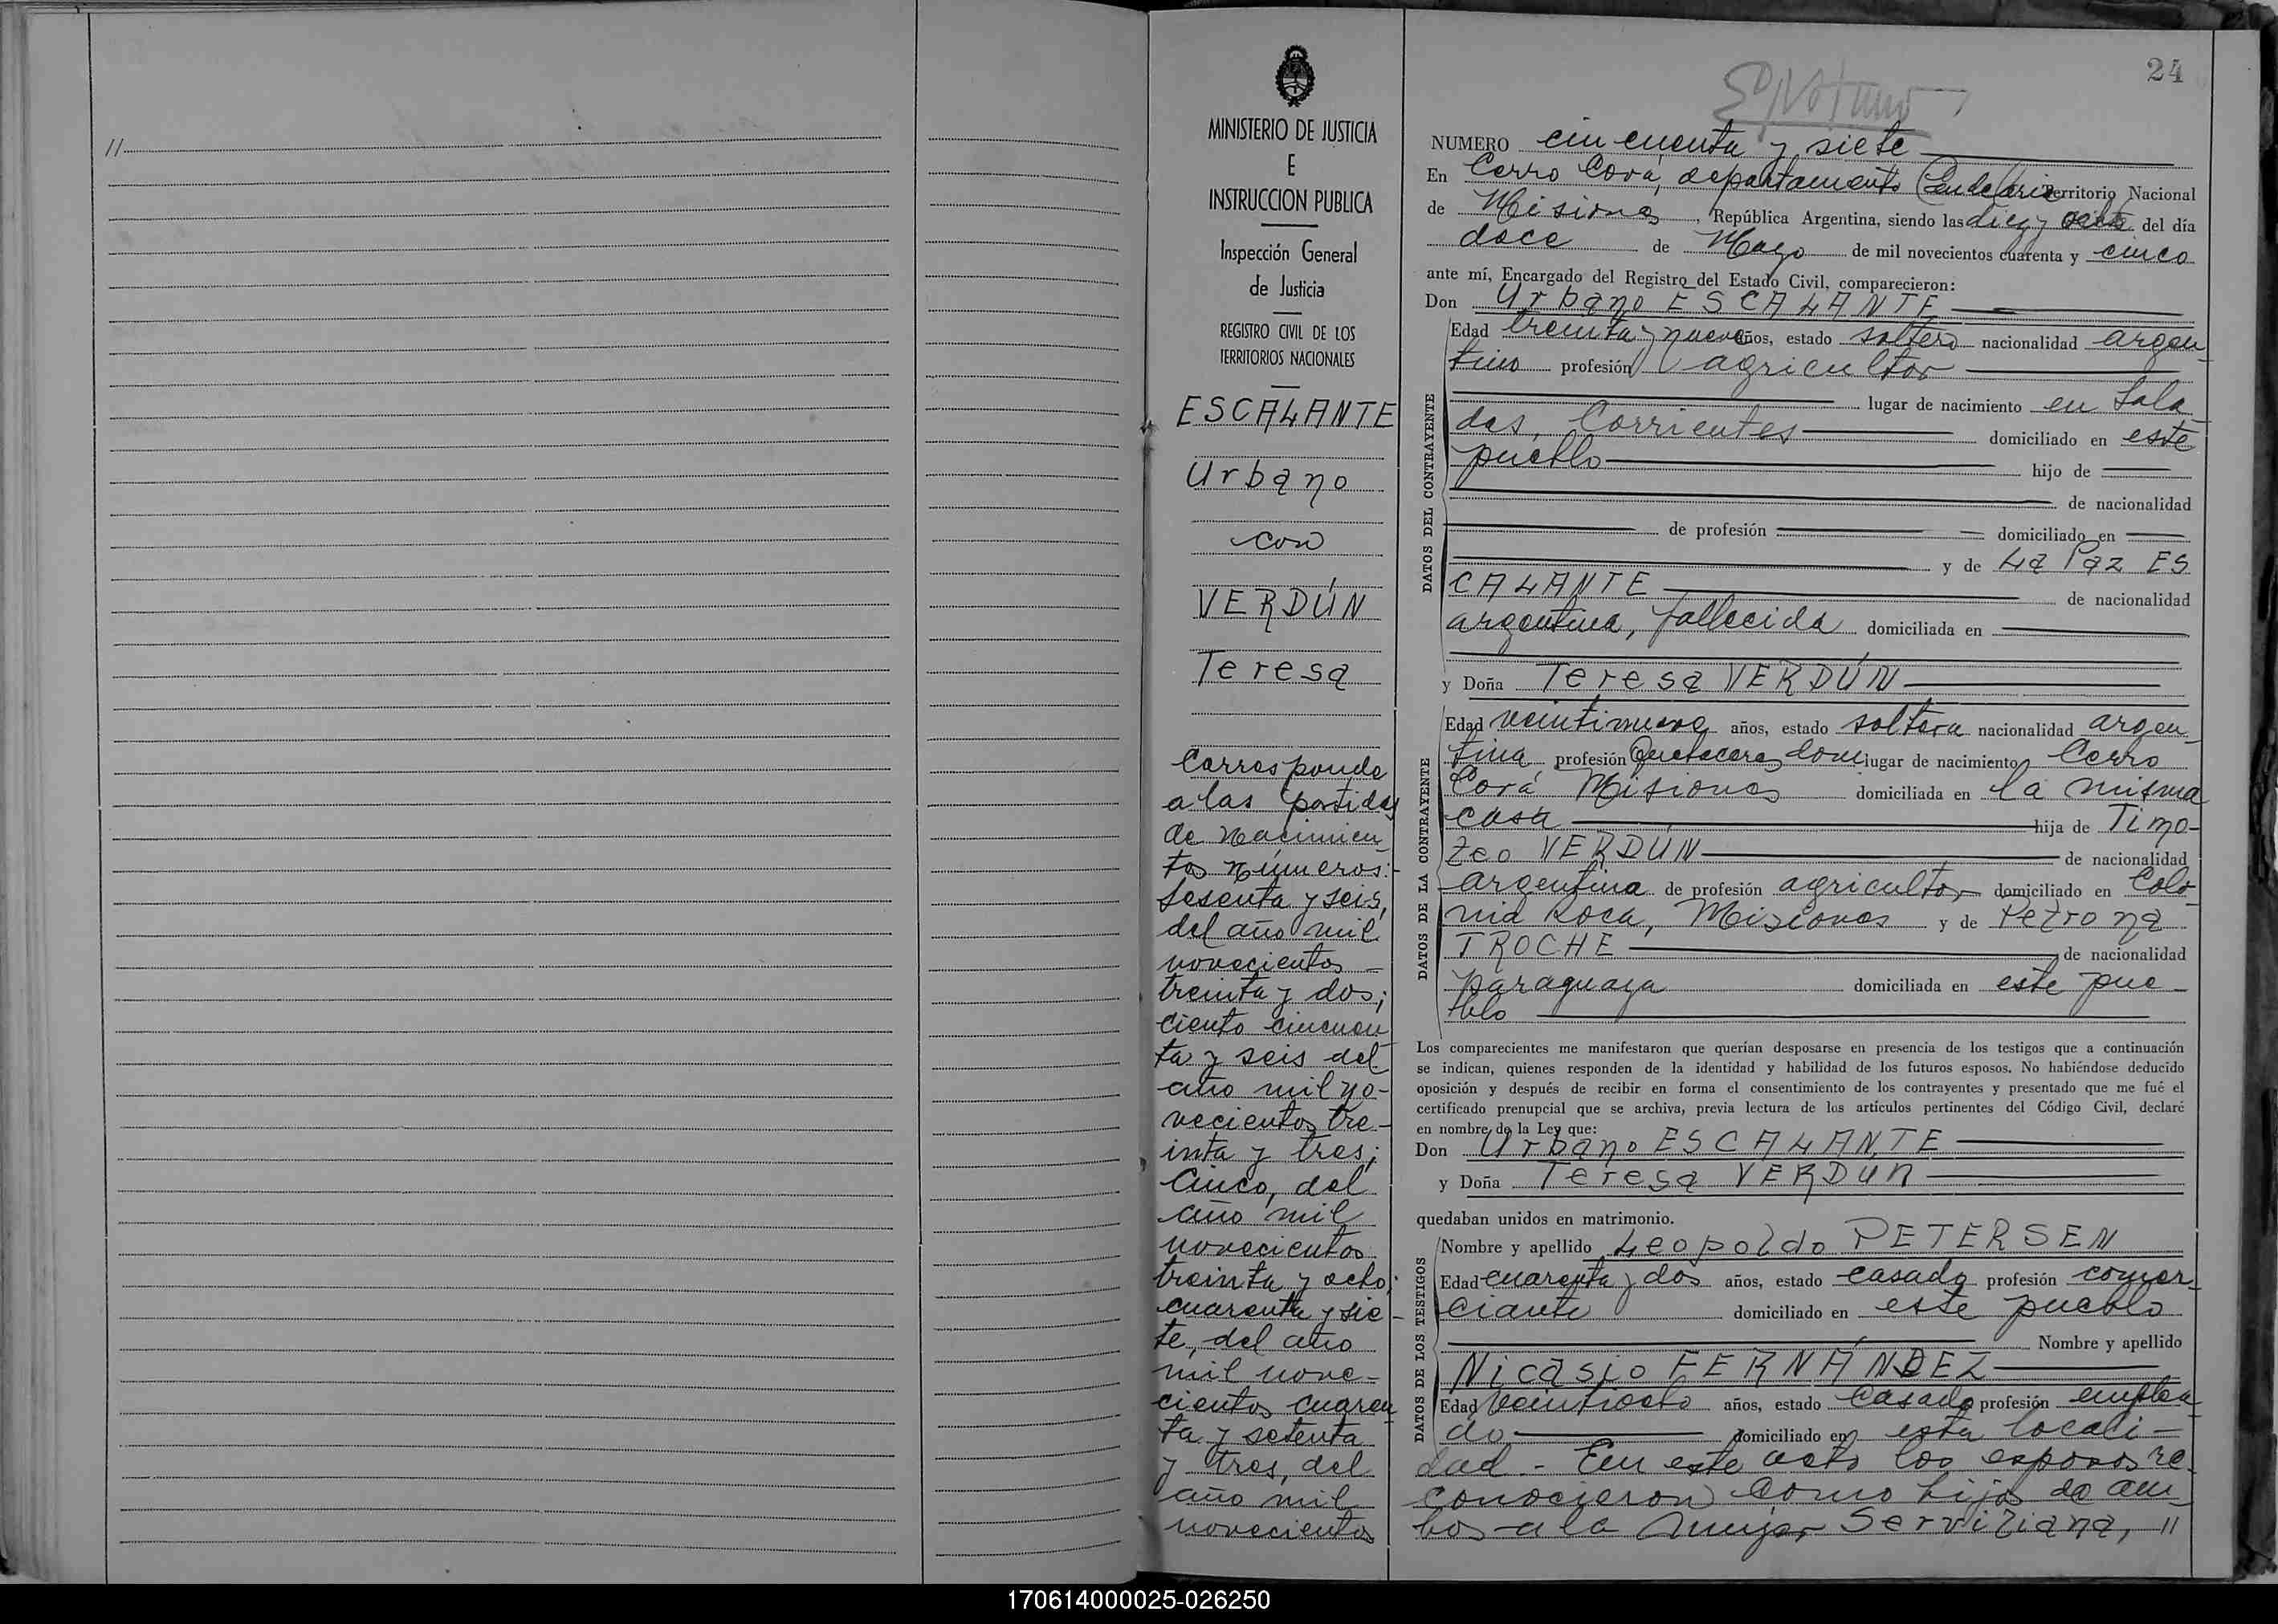 //
MINISTERIO DE JUSTICIA
E
INSTRUCCION PUBLICA
Inspección General
de Justicia
REGISTRO CIVIL DE LOS
TERRITORIOS NACIONALES
ESCALANTE
Urbano
con
VERDÚN
Teresa
Corresponde
a las partidas
de Nacimien-
tos números:-
sesenta y seis,
del año mil
novecientos
treinta y dos;
ciento cincuen
ta y seis del
año mil no-
vecientos tre-
inta y tres;
Cinco, del
año mil
novecientos
treinta y ocho;
cuarenta y sie-
te, del año
mil nove-
cientos cuaren
ta y setenta
y tres, del
año mil
novecientos
24
NUMERO cincuenta y siete
En Cerro Corá, departamento Candelaria Territorio Nacional
de Misiones, República Argentina, siendo las diez y ocho del día
doce de Mayo de mil novecientos cuarenta y cinco
ante mí, Encargado del Registro del Estado Civil, comparecieron:
Don Urbano ESCALANTE
DATOS DEL CONTRAYENTE
Edad treinta y nueve años, estado soltero nacionalidad argen-
tino profesión agricultor
lugar de nacimiento en Sala
das, Corrientes domiciliado en este
pueblo hijo de
de nacionalidad
de profesión domiciliado en
y de La Paz ES
CALANTE de nacionalidad
argentina, fallecida domiciliada en
y Doña Teresa VERDÚN
DATOS DE LA CONTRAYENTE
Edad veintinueve años, estado soltera nacionalidad argen-
tina profesión Quehaceres dom lugar de nacimiento Cerro
Corá Misiones domiciliada en la misma
casa hija de Timo-
teo VERDÚN de nacionalidad
argentina de profesión agricultor domiciliado en Colo
nia Roca, Misiones y de Petrona
TROCHE de nacionalidad
paraguaya domiciliada en este pue-
blo
Los comparecientes me manifestaron que querían desposarse en presencia de los testigos que a continuación
se indican, quienes responden de la identidad y habilidad de los futuros esposos. No habiéndose deducido
oposición y después de recibir en forma el consentimiento de los contrayentes y presentado que me fué el
certificado prenupcial que se archiva, previa lectura de los artículos pertinentes del Código Civil, declaré
en nombre de la Ley que:
Don Urbano ESCALANTE
y Doña Teresa VERDUN
quedaban unidos en matrimonio.
DATOS DE LOS TESTIGOS
Nombre y apellido Leopoldo PETERSEN
Edad cuarenta y dos años, estado casado profesión comer-
ciante domiciliado en este pueblo
Nombre y apellido
Nicasio FERNÁNDEZ
Edad veintiocho años, estado casado profesión emplea
do domiciliado en esta locali-
dad.- En este acto los esposos re-
conocieron como hijos de am-
bos a la mujer Serviliana, //
170614000025-026250